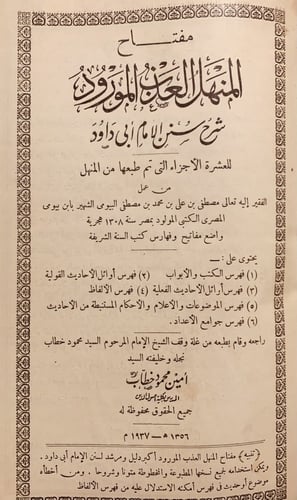 مفتاح
المنهل العذب المورود
شرح سنن الإمام أبي داود
للعشرة الأجزاء التى تم طبعها من المنهل
من عمل
الفقير إليه تعالى مصطفى بن على بن محمد بن مصطفى البيومى الشهير بابن بيومى
المصرى الكتبى المولود بمصر سنة ١٣٠٨ هجرية
واضع مفاتيح وفهارس كتب السنة الشريفة
يحتوى على : —
(١) فهرس الكتب والأبواب (٢) فهرس أوائل الأحاديث القولية
(٣) فهرس أوائل الأحاديث الفعلية (٤) فهرس الألفاظ
(٥) فهرس الموضوعات والأعلام والأحكام المستنبطة من الأحاديث
(٦) فهرس جوامع الأعداد .
راجعه وقام بطبعه من غلة وقف الشيخ الإمام المرحوم السيد محمود خطاب
نجله وخليفته السيد
أمين محمود خطاب
جميع الحقوق محفوظة له
١٣٥٦ هـ — ١٩٣٧ م
(تنبيه) مفتاح المنهل العذب المورود أكبر دليل ومرشد لسنن الإمام أبى داود .
ويمكن استخدامه لجميع نسخها المطبوعة والمخطوطة متونا وشروحا . ومن أخطأه
موضوع أو حديث فى فهرس أمكنه الاستدلال عليه من فهرس الألفاظ